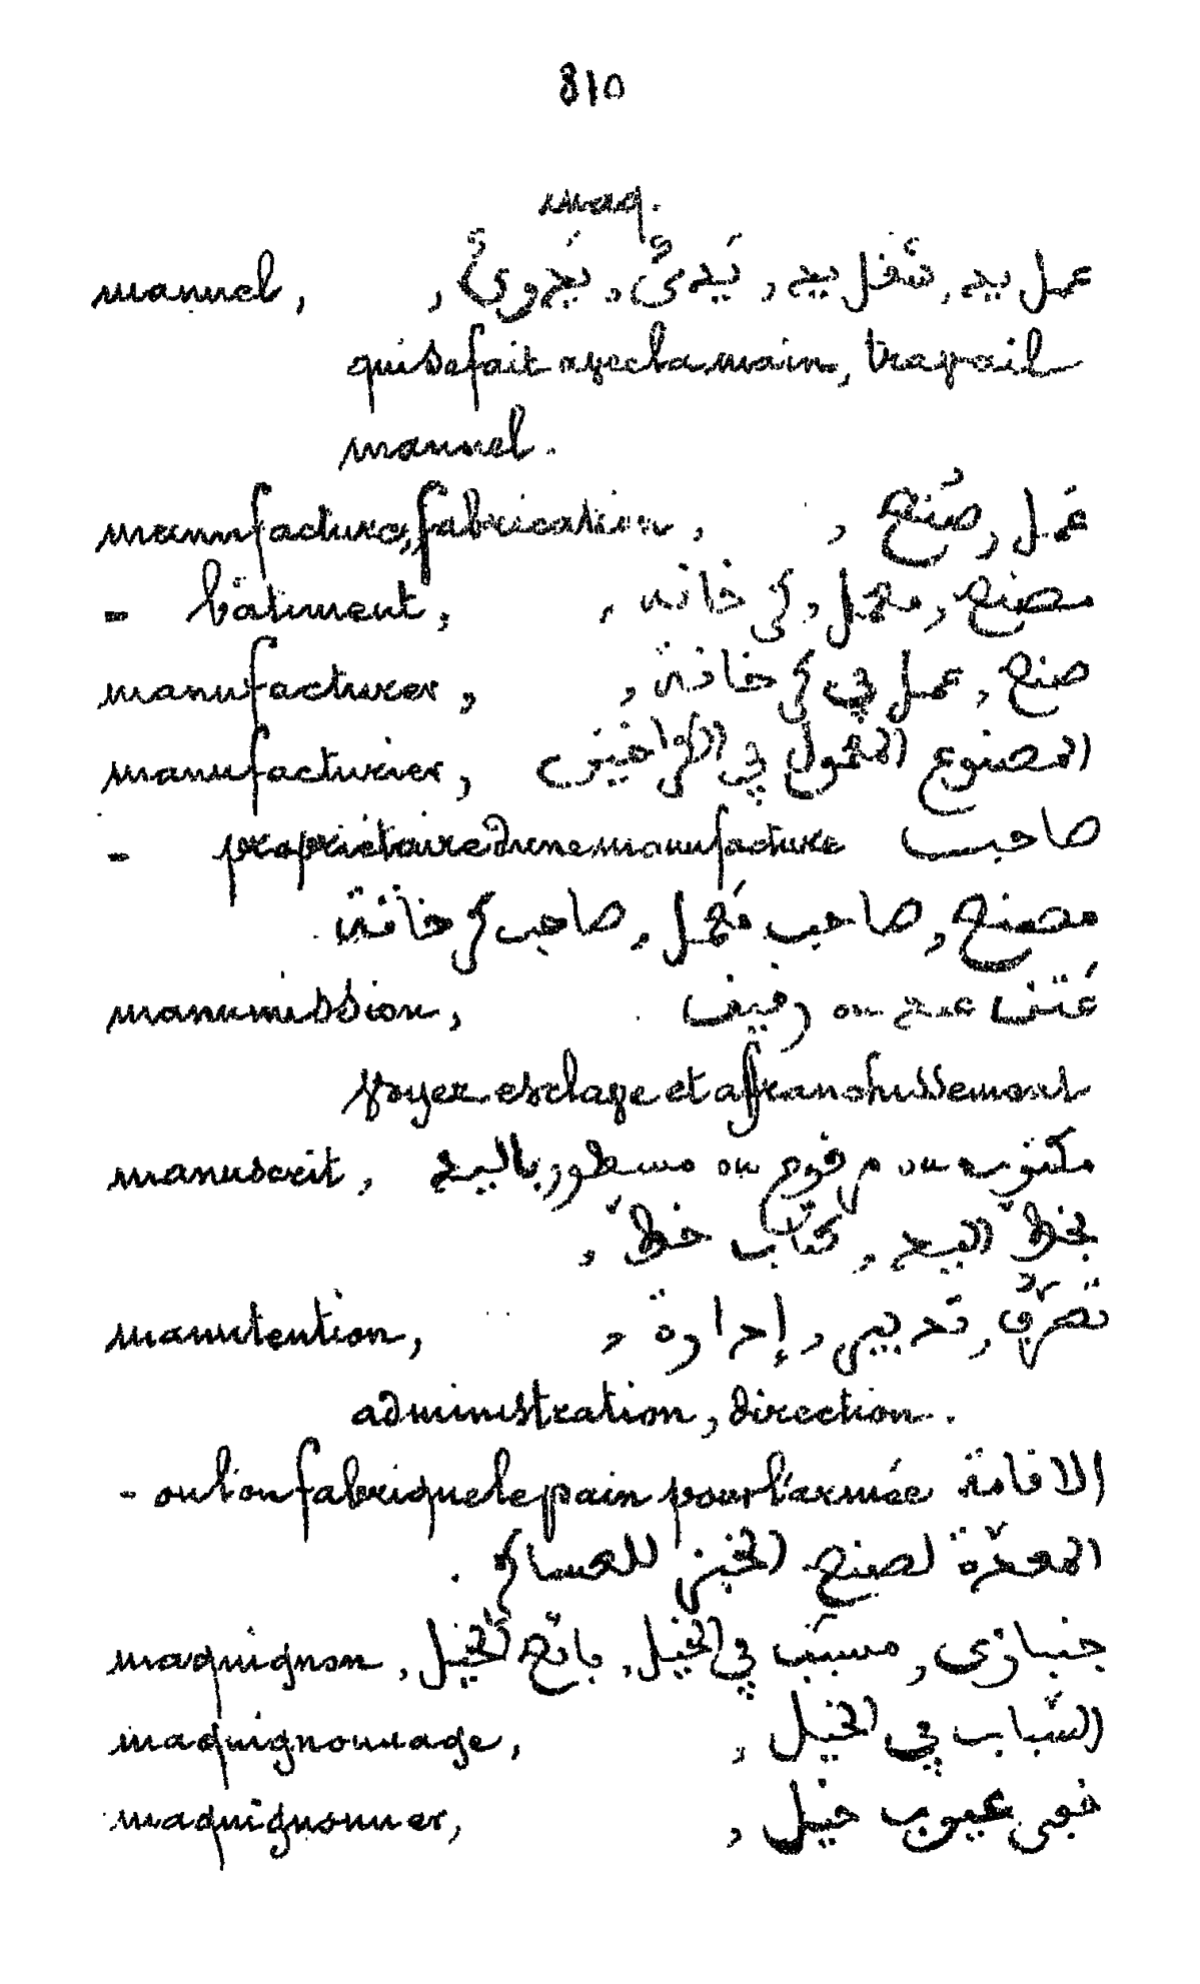 810
maq.
manuel, عمل يد, شغل يد, يَدىٌّ, يَدوىٌّ,
qui se fait avec la main, travail
manuel.
manufacture, fabrication, عَمل, صُنع,
- bâtiment, مصنع, معمل, كرخانه,
manufacturer, صنع, عمل في كرخانة,
manufacturier, المصنوع المعمول في
- propriétaire d'une manufacture صاحب
مصنع, صاحب مَعمل, صاحب كرخانة.
manumission, عَتق عبد ou رقيق
voyez esclave et affranchissement
manuscrit, مكتوب ou مرقوم ou مسطور باليد
بخطّ اليد, كتاب خطّ,
manutention, تصرّف, تدبير, إدارة,
administration, direction.
- où l'on fabrique le pain pour l'armée الاقامة
المعدّة لصنع الخبز للعساكر.
maquignon, جنبازى, مسبّب في الخيل, بائع الخيل,
maquignonnage, السّباب في الخيل,
maquignonner, عيوب خيل,